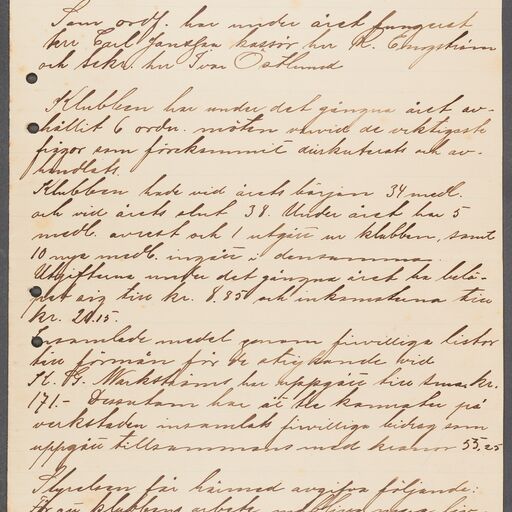 Som ordf. har under året fungerat
herr Carl Jansson kassör hr K. Engström
och sekr. hr Ivar Östlund
Klubben har under det gångna året av-
hållit 6 ordn. möten varvid de viktigaste
frågor som förekommit diskuterats och av-
handlats.
Klubben hade vid årets början 34 medl.
och vid årets slut 38. Under året har 5
medl. avrest och 1 utgått ur klubben, samt
10 nya medl. ingått i densamma.
Utgifterna under det gångna året ha belö-
pat sig till kr. 8.85 och inkomsterna till
kr. 20.15.
Insamlade medel genom frivilliga listor
till förmån för de strejkande vid
K. G. Markströms har uppgått till summa kr.
171.- Dessutom har å de kamrater på
verkstaden insamlats frivilliga bidrag som
uppgått tillsammans med kronor 55,25
Styrelsen får härmed avgifva följande:
För att klubbens arbete